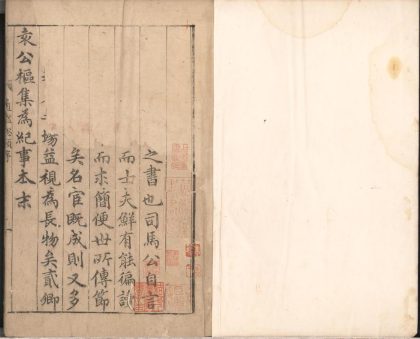 之書也司馬公自言
而士夫鮮有能徧
而求簡便世所傳節
矣名宦既成則又多
坊益視為長物矣貳卿
袁公樞集為紀事本末